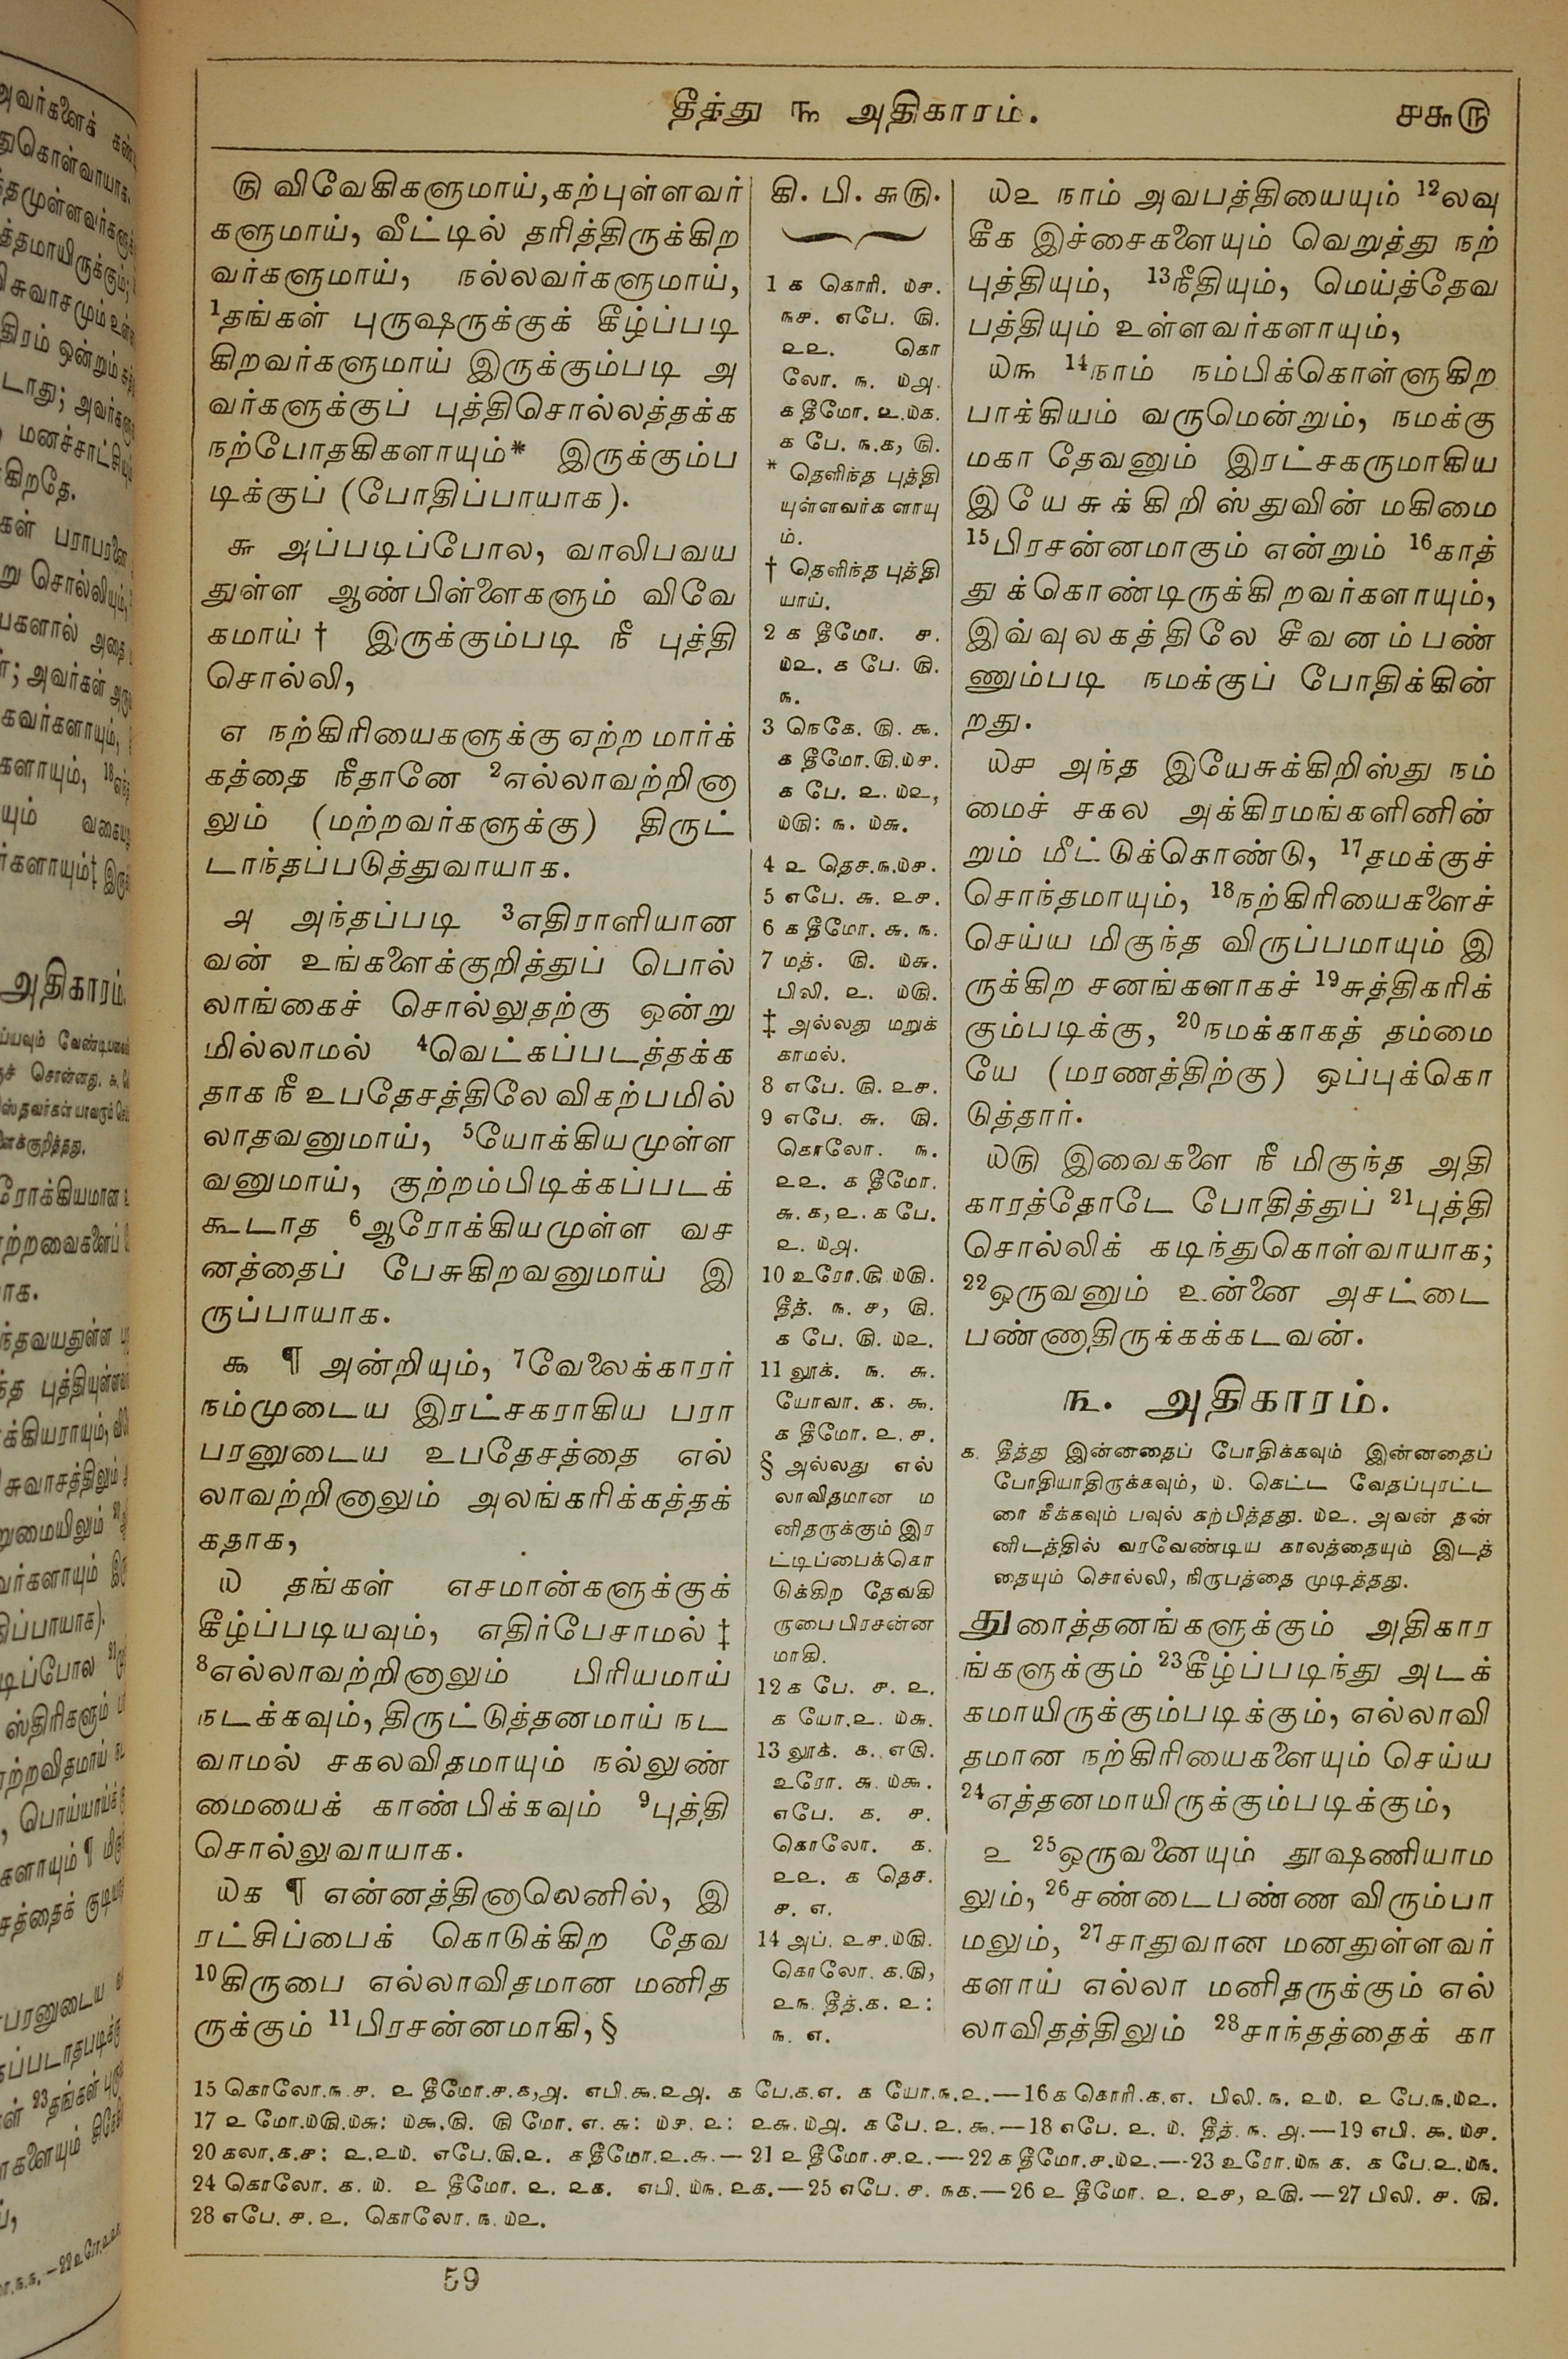 தீத்து ௩ அதிகாரம்.
௪௬௫
௫ விவேகிகளுமாய்,கற்புள்ளவர்
களுமாய், வீட்டில் தரித்திருக்கிற
வர்களுமாய், நல்லவர்களுமாய்,
1தங்கள் புருஷருக்குக் கீழ்ப்படி
கிறவர்களுமாய் இருக்கும்படி அ
வர்களுக்குப் புத்திசொல்லத்தக்க
நற்போதகிகளாயும்* இருக்கும்ப
டிக்குப் (போதிப்பாயாக).
௬ அப்படிப்போல, வாலிபவய
துள்ள ஆண்பிள்ளைகளும் விவே
கமாய்† இருக்கும்படி நீ புத்தி
சொல்லி,
௭ நற்கிரியைகளுக்கு ஏற்ற மார்க்
கத்தை நீதானே 2எல்லாவற்றினா
லும் (மற்றவர்களுக்கு) திருட்
டாந்தப்படுத்துவாயாக.
௮ அந்தப்படி 3எதிராளியான
வன் உங்களைக்குறித்துப் பொல்
லாங்கைச் சொல்லுதற்கு ஒன்று
மில்லாமல் 4வெட்கப்படத்தக்க
தாக நீ உபதேசத்திலே விகற்பமில்
லாதவனுமாய், 5யோக்கியமுள்ள
வனுமாய், குற்றம்பிடிக்கப்படக்
கூடாத 6ஆரோக்கியமுள்ள வச
னத்தைப் பேசுகிறவனுமாய் இ
ருப்பாயாக.
௯ ¶ அன்றியும், 7வேலைக்காரர்
நம்முடைய இரட்சகராகிய பரா
பரனுடைய உபதேசத்தை எல்
லாவற்றினாலும் அலங்கரிக்கத்தக்
கதாக,
௰ தங்கள் எசமான்களுக்குக்
கீழ்ப்படியவும், எதிர்பேசாமல்‡
8எல்லாவற்றினாலும் பிரியமாய்
நடக்கவும், திருட்டுத்தனமாய் நட
வாமல் சகலவிதமாயும் நல்லுண்
மையைக் காண்பிக்கவும் 9புத்தி
சொல்லுவாயாக.
௰௧ ¶ என்னத்தினாலெனில், இ
ரட்சிப்பைக் கொடுக்கிற தேவ
10கிருபை எல்லாவிதமான மனித
ருக்கும் 11பிரசன்னமாகி,§
கி. பி. ௬௫.
1 ௧ கொரி. ௰௪.
௩௪. எபே. ௫.
௨௨. கொ
லோ. ௩. ௰௮.
௧ தீமோ. ௨.௰௧.
௧ பே. ௩.௧, ௫.
* தெளிந்த புத்தி
யுள்ளவர்களாயு
ம்.
† தெளிந்த புத்தி
யாய்.
2 ௧ தீமோ. ௪.
௰௨. ௧ பே. ௫.
௩.
3 நெகே. ௫. ௯.
௧ தீமோ.௫.௰௪.
௧ பே. ௨. ௰௨,
௰௫: ௩. ௰௬.
4 ௨ தெச.௩.௰௪.
5 எபே. ௬. ௨௪.
6 ௧ தீமோ. ௬. ௩.
7 மத். ௫. ௰௬.
பிலி. ௨. ௰௫.
‡ அல்லது மறுக்
காமல்.
8 எபே. ௫. ௨௪.
9 எபே. ௬. ௫.
கொலோ. ௩.
௨௨. ௧ தீமோ.
௬. ௧, ௨. ௧ பே.
௨. ௰௮.
10 உரோ.௫.௰௫.
தீத். ௩. ௪, ௫.
௧ பே. ௫. ௰௨.
11 லூக். ௩. ௬.
யோவா. ௧. ௯.
௧ தீமோ. ௨. ௪.
§ அல்லது எல்
லாவிதமான ம
னிதருக்கும் இர
ட்டிப்பைக்கொ
டுக்கிற தேவகி
ருபை பிரசன்ன
மாகி.
12 ௧ பே. ௪. ௨.
௧ யோ.௨. ௰௬.
13 லூக். ௧. ௭௫.
உரோ. ௬. ௰௯.
எபே. ௧. ௪.
கொலோ. ௧.
௨௨. ௧ தெச.
௪. ௭.
14 அப். ௨௪.௰௫.
கொலோ. ௧.௫,
௨௩. தீத்.௧. ௨:
௩. ௭.
௰௨ நாம் அவபத்தியையும் 12லவு
கீக இச்சைகளையும் வெறுத்து நற்
புத்தியும், 13நீதியும், மெய்த்தேவ
பத்தியும் உள்ளவர்களாயும்,
௰௩ 14நாம் நம்பிக்கொள்ளுகிற
பாக்கியம் வருமென்றும், நமக்கு
மகா தேவனும் இரட்சகருமாகிய
இயேசுக்கிறிஸ்துவின் மகிமை
15பிரசன்னமாகும் என்றும் 16காத்
துக்கொண்டிருக்கிறவர்களாயும்,
இவ்வுலகத்திலே சீவனம்பண்
ணும்படி நமக்குப் போதிக்கின்
றது.
௰௪ அந்த இயேசுக்கிறிஸ்து நம்
மைச் சகல அக்கிரமங்களினின்
றும் மீட்டுக்கொண்டு, 17தமக்குச்
சொந்தமாயும், 18நற்கிரியைகளைச்
செய்ய மிகுந்த விருப்பமாயும் இ
ருக்கிற சனங்களாகச் 19சுத்திகரிக்
கும்படிக்கு, 20நமக்காகத் தம்மை
யே (மரணத்திற்கு) ஒப்புக்கொ
டுத்தார்.
௰௫ இவைகளை நீ மிகுந்த அதி
காரத்தோடே போதித்துப் 21புத்தி
சொல்லிக் கடிந்துகொள்வாயாக;
22ஒருவனும் உன்னை அசட்டை
பண்ணாதிருக்கக்கடவன்.
௩. அதிகாரம்.
௧. தீத்து இன்னதைப் போதிக்கவும் இன்னதைப்
போதியாதிருக்கவும், ௰. கெட்ட வேதப்புரட்ட
ரை நீக்கவும் பவுல் கற்பித்தது. ௰௨. அவன் தன்
னிடத்தில் வரவேண்டிய காலத்தையும் இடத்
தையும் சொல்லி, நிருபத்தை முடித்தது.
துரைத்தனங்களுக்கும் அதிகார
ங்களுக்கும் 23கீழ்ப்படிந்து அடக்
கமாயிருக்கும்படிக்கும், எல்லாவி
தமான நற்கிரியைகளையும் செய்ய
24எத்தனமாயிருக்கும்படிக்கும்,
௨ 25ஒருவனையும் தூஷணியாம
லும், 26சண்டைபண்ண விரும்பா
மலும், 27சாதுவான மனதுள்ளவர்
களாய் எல்லா மனிதருக்கும் எல்
லாவிதத்திலும் 28சாந்தத்தைக் கா
15 கொலோ.௩.௪. ௨ தீமோ.௪.௧,௮. எபி.௯.௨௮. ௧ பே.௧.௭. ௧ யோ.௩.௨.—16 ௧ கொரி.௧.௭. பிலி. ௩. ௨௰. ௨ பே.௩.௰௨.
17 ௨ மோ.௰௫.௰௬: ௰௯.௫. ௫ மோ. ௭. ௬: ௰௪. ௨: ௨௬.௰௮. ௧ பே. ௨. ௯.—18 எபே. ௨. ௰. தீத். ௩. ௮.—19 எபி. ௯. ௰௪.
20 கலா.௧.௪: ௨.௨௰. எபே.௫.௨. ௧ தீமோ.௨.௬.—21 ௨ தீமோ.௪.௨.—22 ௧ தீமோ.௪.௰௨.—23 உரோ.௰௩ ௧. ௧ பே.௨.௰௩.
24 கொலோ. ௧. ௰. ௨ தீமோ. ௨. ௨௧. எபி. ௰௩. ௨௧.—25 எபே. ௪. ௩௧.—26 ௨ தீமோ. ௨. ௨௪, ௨௫.—27 பிலி. ௪. ௫.
28 எபே. ௪. ௨. கொலோ. ௩. ௰௨.
59